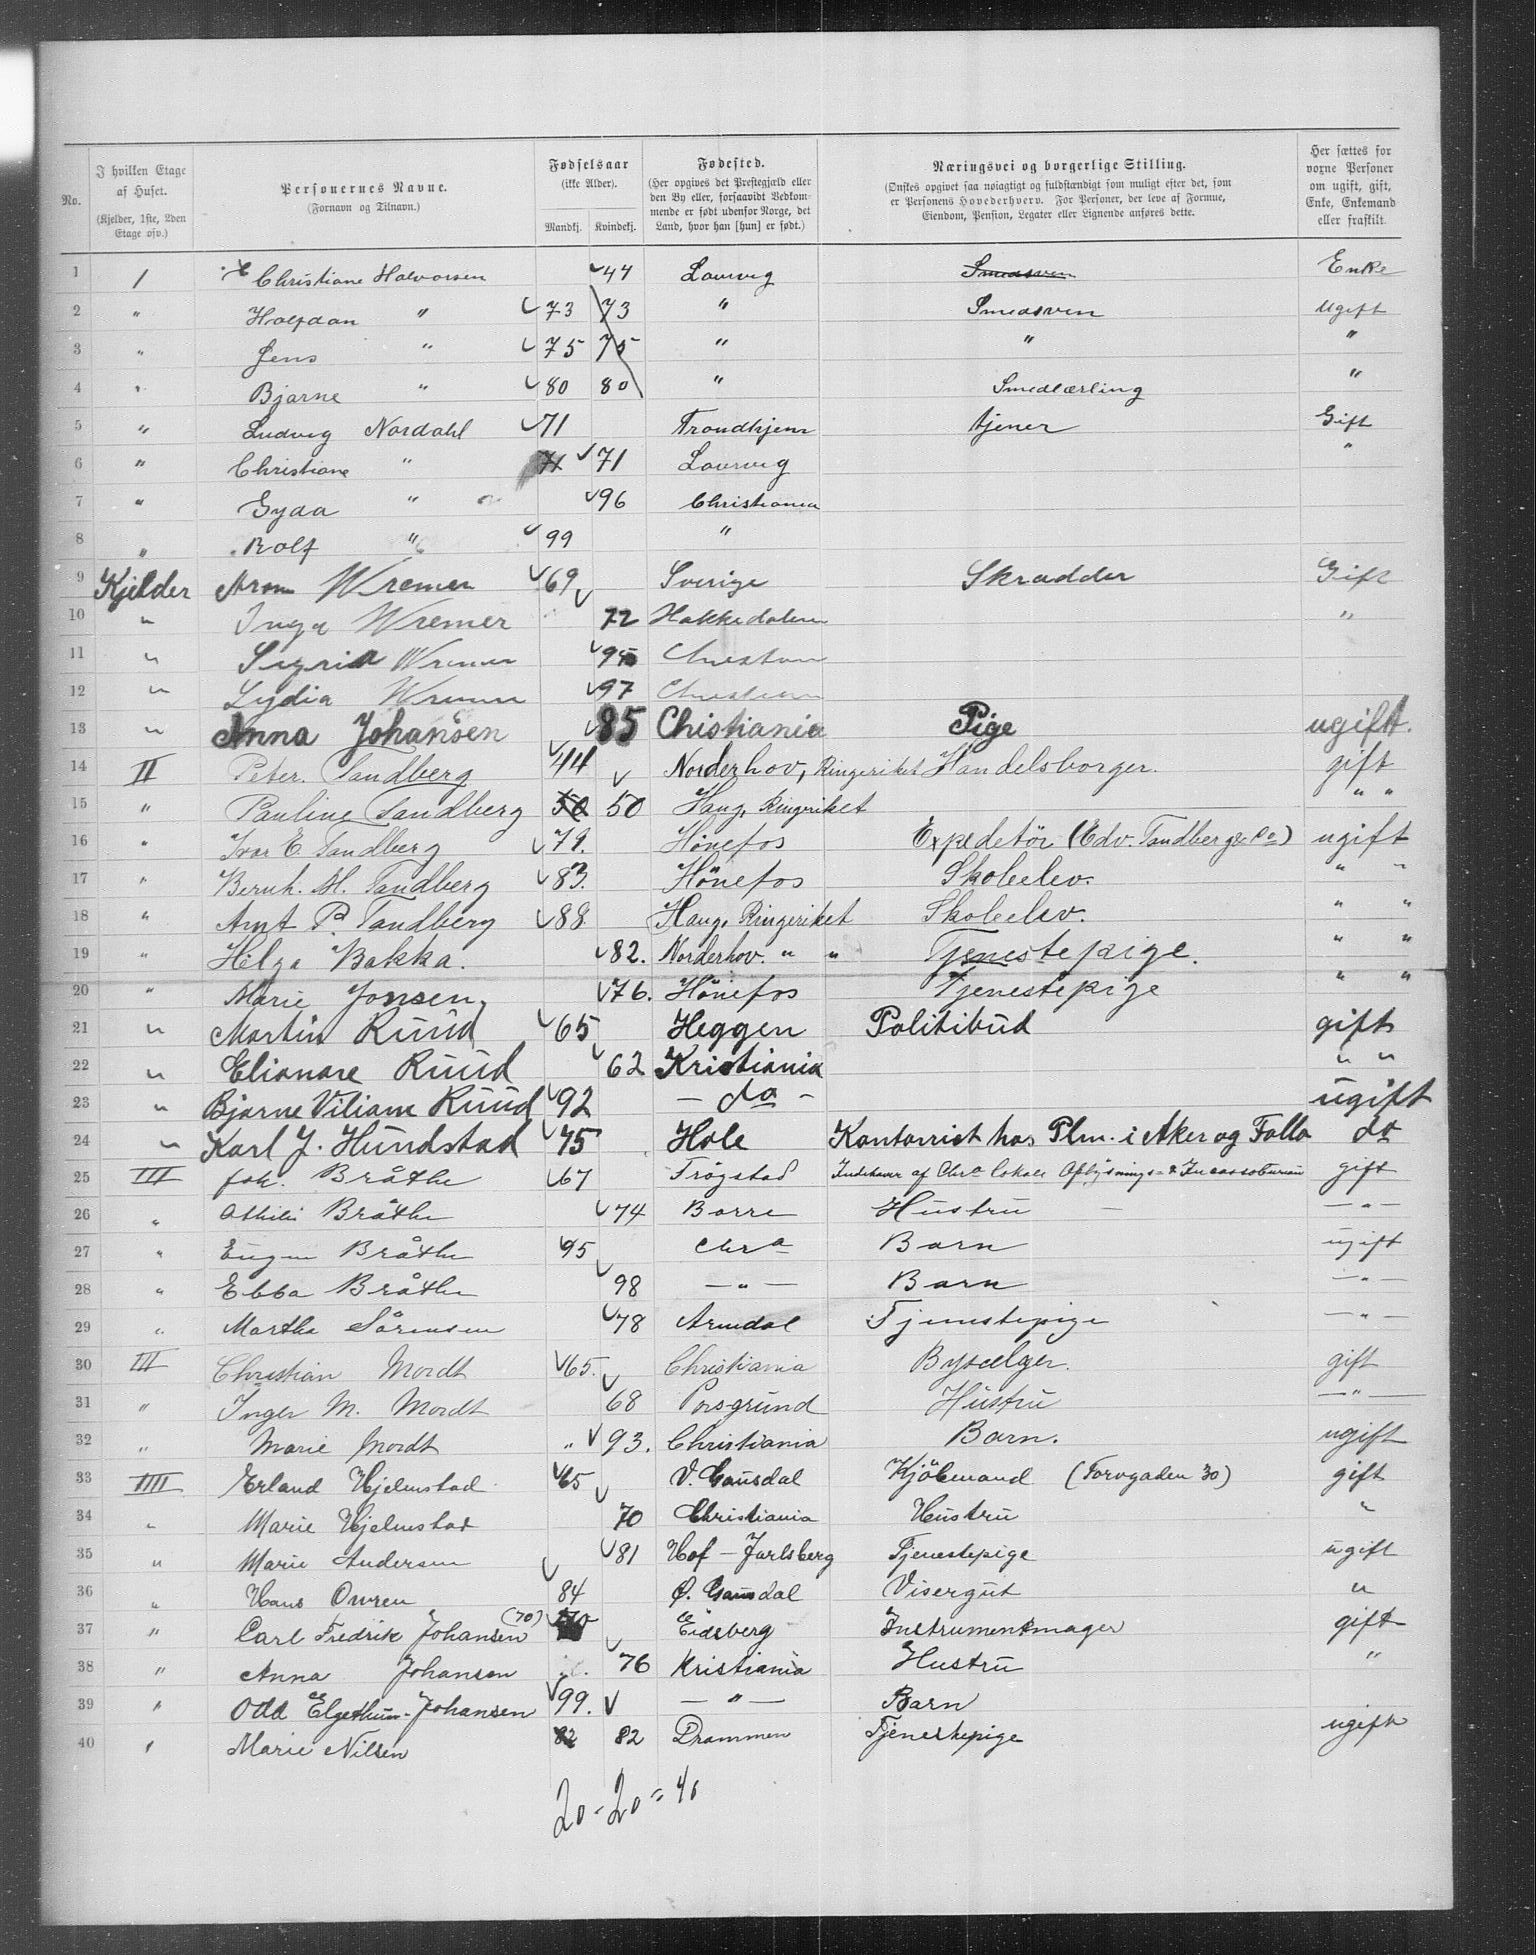 No.
I hvilken Etage af Huset.
(Kjelder, 1ste, 2den Etage osv.)
Personernes Navne.
(Fornavn og Tilnavn.)
Fødselsaar
(ikke Alder).
Mandkj. Kvindekj.
Fødested.
(Her opgives det Prestegjæld eller den By eller, forsaavidt Vedkommende er født udenfor Norge, det Land, hvor han [hun] er født.)
Næringsvei og borgerlige Stilling.
(Ønskes opgivet saa nøiagtigt og fuldstændigt som muligt efter det, som er Personens Hovederhverv. For Personer, der leve af Formue, Eiendom, Pension, Legater eller Lignende anføres dette.
Her sættes for voxne Personer om ugift, gift, Enke, Enkemand eller fraskilt.
1 1 Christiane Halvorsen 44 Laurvig Smedsven Enke
2 " Halfdan " 73 73 " Smedsven Ugift
3 " Jens " 75 75 " " "
4 " Bjarne " 80 80 " Smedlærling "
5 " Ludvig Nordahl 71 Trondhjem tjener Gift
6 " Christiane " 71 71 Laurvig "
7 " Gyda " 96 Christiania
8 " Rolf " 99 "
9 Kjelder Aron Wremer 69 Sverige Skrædder Gift
10 " Inga Wremer 72 Hakkedalen "
11 " Sigrid Wremer 95
12 " Lydia Wremer 97
13 " Anna Johansen 85 Chistiania Pige ugift.
14 II Peter. Tandberg 44 Norderhov, Ringeriket Handelsborger. gift
15 " Pauline Tandberg 50 50 Haug, Ringeriket " "
16 " Ivar E. Tandberg 79. Hönefos Expedetör (Edv. Tandberg & Co) ugift
17 " Bernh. M. Tandberg 83. Hönefos Skoleelev. " "
18 " Arnt P. Tandberg 88. Haug, Ringeriket Skoleelev. " "
19 " Helga Bakka. 82. Norderhov. " " Tjenestepige. " "
20 " Marie Jonsen, 76. Hönefos Tjenestepige " "
21 " Martin Ruud 65 Heggen Politibud gift
22 " Elianore Ruud 62 Kristiania " "
23 " Bjarne Viliam Ruud 92 - do - ugift
24 " Karl J. Hundstad 75 Hole Kontorist hos Plm. i Aker og Follo do
25 III Joh. Bråthe 67 Trögstad Indehaver af Chra lokale Oplysnings- & Incassobureau gift
26 " Bråthe 74 Borre Hustru - " -
27 " Eugen Bråthe 95 Chra Barn ugift
28 " Ebba Bråthe 98 - " - Barn - " -
29 " Martha Sörensen 78 Arendal Tjenestepige - " -
30 III Christian Mordt 65. Christiania Bysælger. gift
31 " Inger M. Mordt 68 Porsgrund Hustru - " -
32 " Marie Mordt " 93. Christiania Barn. ugift
33 IIII Erland Hjelmstad 65 V. Gausdal Kjöbmand (Torvgaden 30) gift
34 " Marie Hjelmstad 70 Christiania Hustru "
35 " Marie Andersen 81 Hof - Jarlsberg Tjenestepige ugift
36 " Hans Owren 84 Ø. Gausdal Visergut "
37 " Carl Fredrik Johansen (70) Eidsberg Instrumentmager gift
38 " Anna Johansen 76 Kristiania Hustru "
39 " Odd Elgethun-Johansen 99. - " - Barn
40 " Marie Nilsen 82 82 Drammen Tjenestepige ugift
20 - 20 = 40